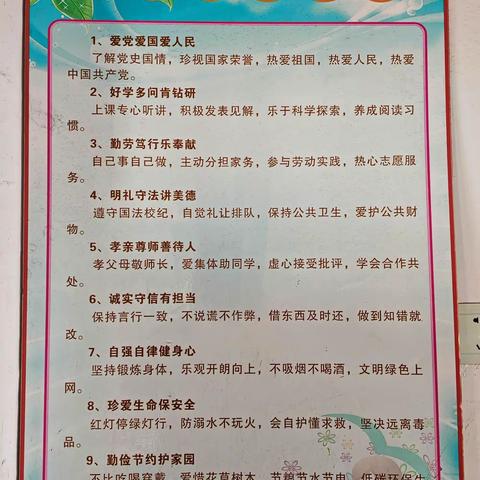 1、爱党爱国爱人民
了解党史国情，珍视国家荣誉，热爱祖国，热爱人民，热爱
中国共产党。
2、好学多问肯钻研
上课专心听讲，积极发表见解，乐于科学探索，养成阅读习
惯。
3、勤劳笃行乐奉献
自己事自己做，主动分担家务，参与劳动实践，热心志愿服
务。
4、明礼守法讲美德
遵守国法校纪，自觉礼让排队，保持公共卫生，爱护公共财
物。
5、孝亲尊师善待人
孝父母敬师长，爱集体助同学，虚心接受批评，学会合作共
处。
6、诚实守信有担当
保持言行一致，不说谎不作弊，借东西及时还，做到知错就
改。
7、自强自律健身心
坚持锻炼身体，乐观开朗向上，不吸烟不喝酒，文明绿色上
网。
8、珍爱生命保安全
红灯停绿灯行，防溺水不玩火，会自护懂求救，坚决远离毒
品。
9、勤俭节约护家园
不比吃喝穿戴，爱惜花草树木，节粮节水节电，低碳环保生